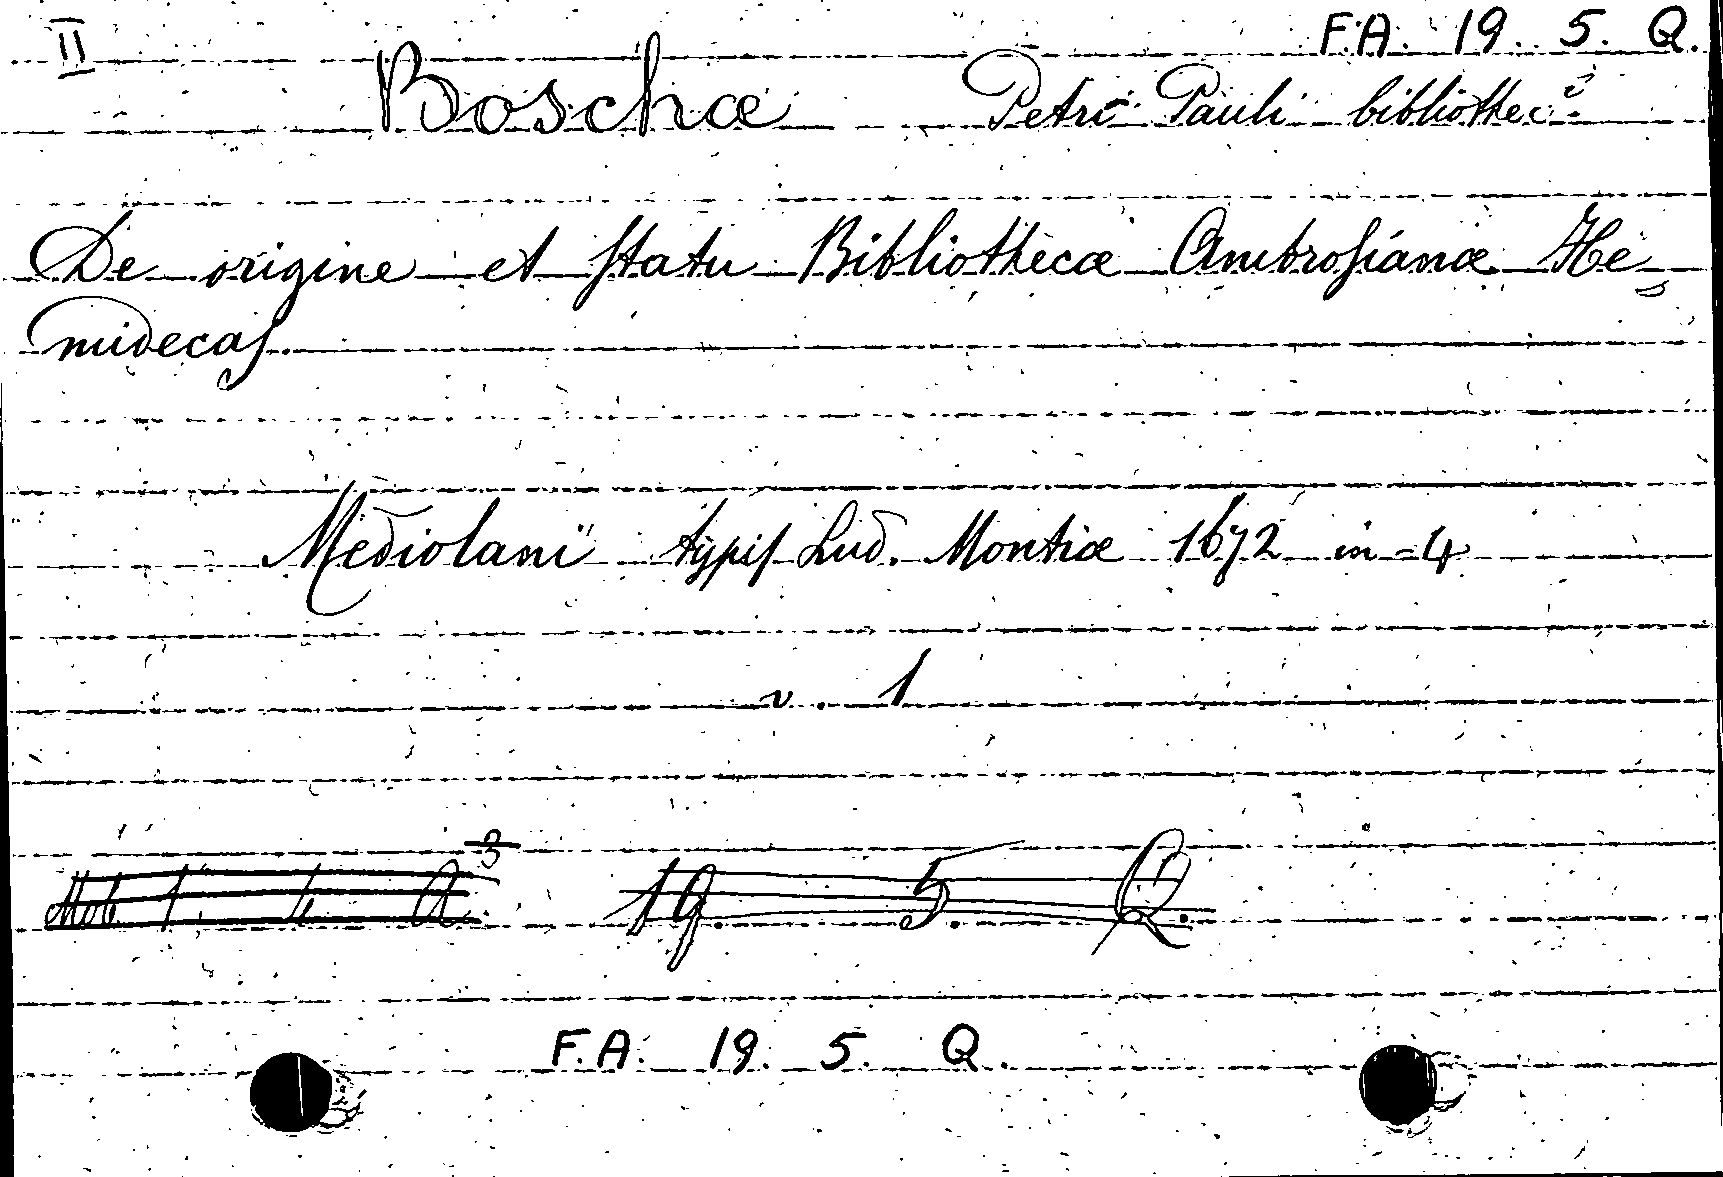 II F.A. 19. 5. Q.
Boschæ Petri Pauli bibliothec.i
De origine et statu Bibliothecæ Ambrosianæ He=
midecas.
Mediolani typis Lud. Montiæ 1672 in-4
v. 1
Mob 1. Q 3 19. 5. Q.
F.A. 19. 5. Q.